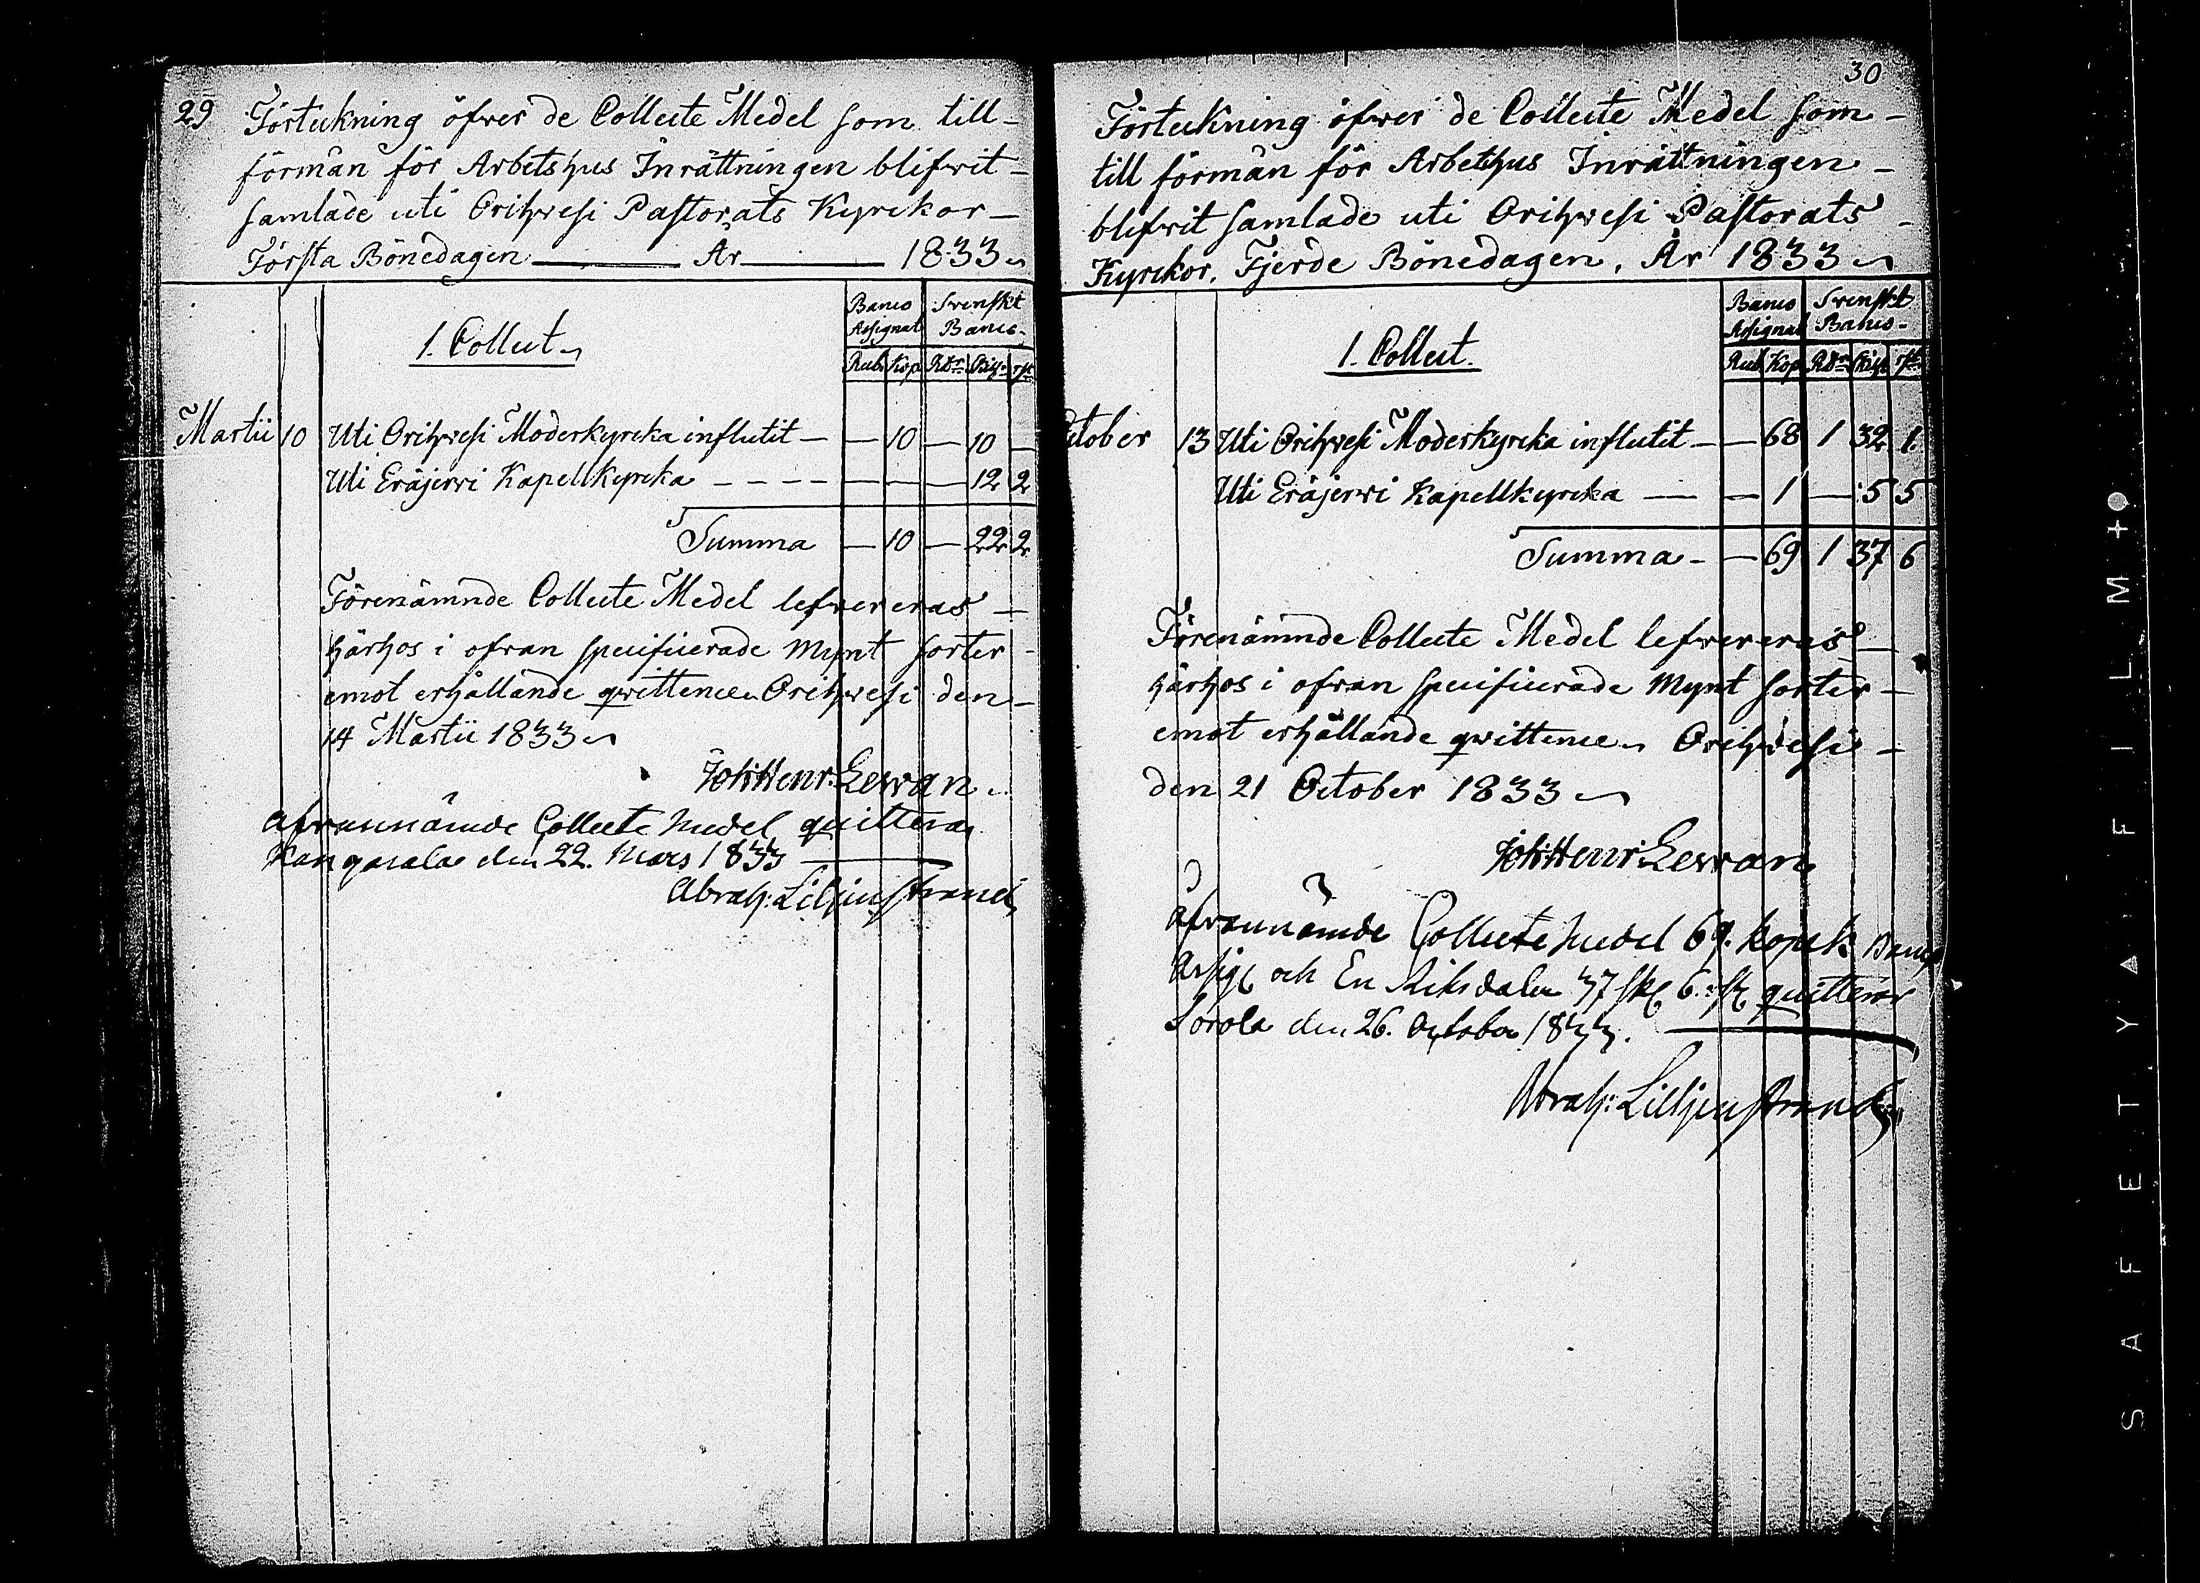 29 Förteckning öfver de Collecte Medel som till-
förmån för Arbetshus Inrättningen blifvit-
samlade uti Orihvesi Pastorats Kyrckor-
Första Bönedagen ——— År ——— 1833
1. Collect
Banco Assignat Svenskt Banco
Rub. Kop. Rdr Skg. rst
Martii 10 Uti Orihvesi Moderkyrcka influtit — — 10 — 10 —
Uti Eräjervi Kapellkyrcka - - - - — — — 12 2
Summa — 10 — 22 2
Förenämnde Collecte Medel lefvereras —
härhos i ofvan specificerade Mynt sorter -
emot erhållande qvittence Orihvesi den -
14 Martii 1833
Joh: Henr: Levan
Ofvannämde Collecte medel quitteras
Kangasala den 22. Mars 1833
Abrah: Liljenstrand
30
Förteckning öfver de Collecte Medel som -
till förmån för Arbetshus Inrättningen -
blifvit samlade uti Orihvesi Pastorats -
Kyrckor. Fjerde Bönedagen. År 1833
1. Collect.
Banco Assignat Svenskt Banco
Rub. Kop. Rdr Skg. rst
October 13 Uti Orihvesi Moderkyrcka influtit — — 68 1 32 1.
Uti Eräjervi Kapellkyrcka — — 1 — 5 5
Summa - — 69 1 37 6
Förenämnde Collecte Medel lefvereras —
härhos i ofvan specificerade Mynt sorter -
emot erhållande qvittence Orihvesi -
den 21 October 1833
Joh: Henr: Levan
Ofvannämde Collecte medel 69. kopek Banco
Assig och En Riksdaler 37 sk 6. rst quitteras
Sorola den 26. October 1833.
Abrah: Liljenstrand
SAFETY FILM